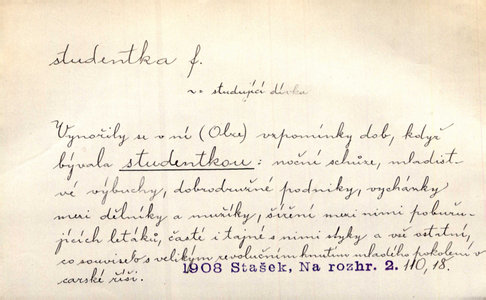 studentka f.
~ = studující dívka
Vynořily se v ní (Olze) vzpomínky dob, když
bývala studentkou: noční schůze, mladist-
vé výbuchy, dobrodružné podniky, vycházky
mezi dělníky a mužíky, šíření mezi nimi pobuřu-
jících letáků, časté i tajné s nimi styky a vše ostatní,
co souviselo s velikým revolučním hnutím mladého pokolení v
carské říši. 1908 Stašek, Na rozhr. 2. 110, 18.